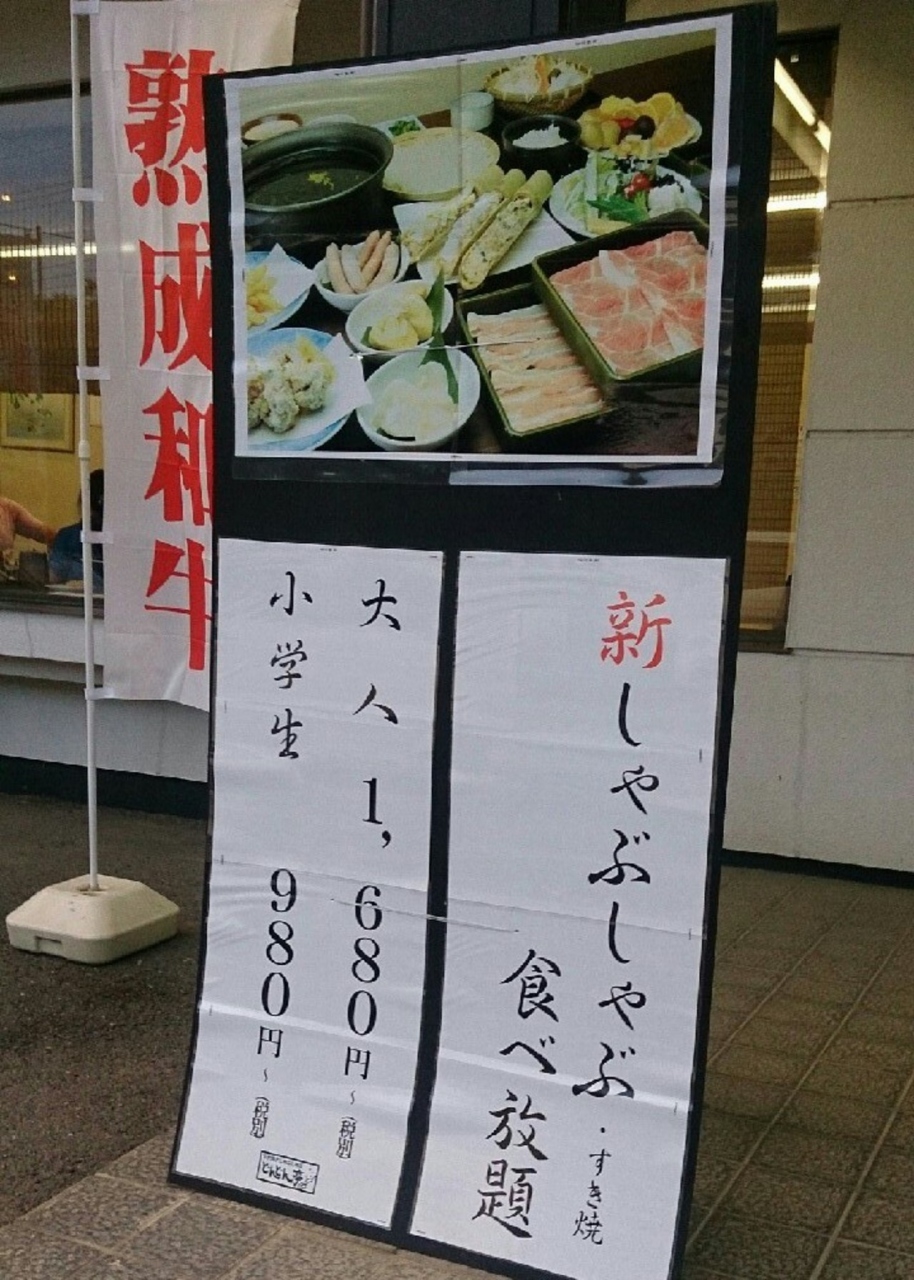 熟成和牛
新しゃぶしゃぶ・すき焼
食べ放題
大人1,680円~(税別)
小学生980円~(税別)
とんでん亭